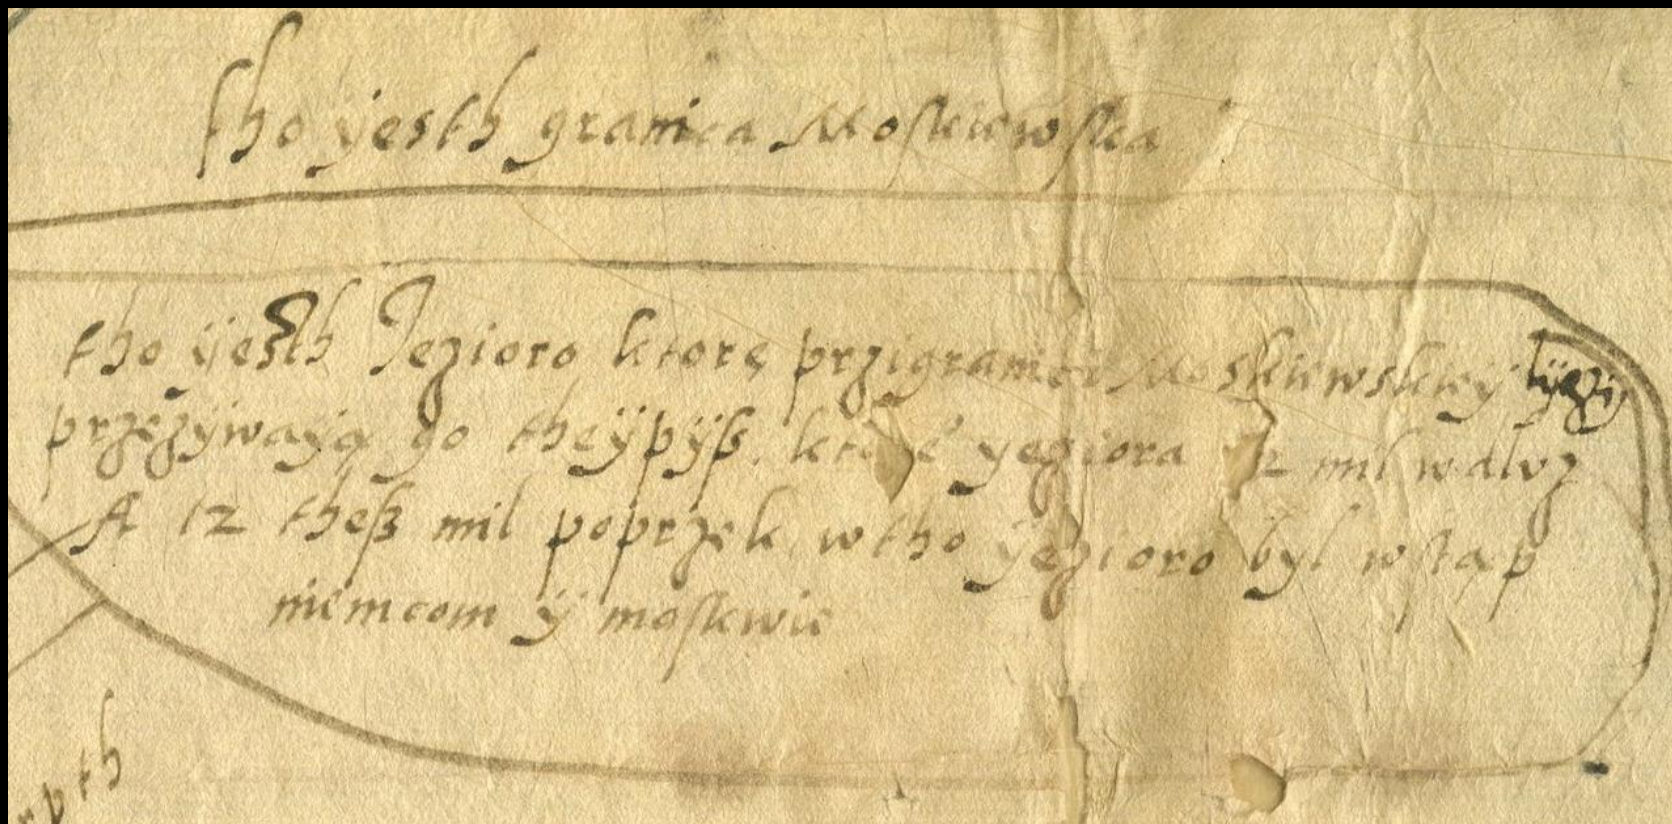 tho ÿesth granica Moskiewska
tho ÿesth Jezioro ktorę przigranici Moskiewskieÿ lÿęzÿ
przezÿwaÿą go theÿpÿß. ÿeziora 12 mil wdlvz
A 12 theß mil poprzek wtho ÿezioro był wstąp
niemcom ÿ moskwie